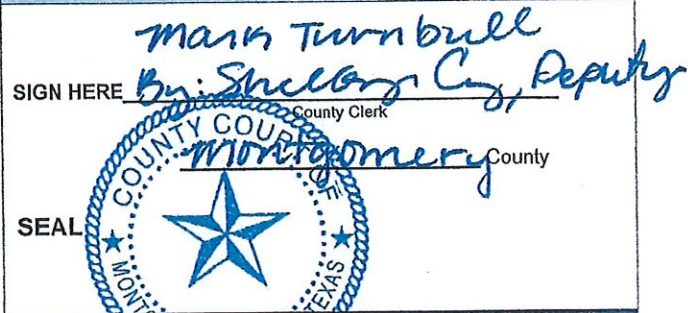 Mark Turnbull
SIGN HERE By: Deputy
County Clerk
Montgomery County
SEAL
COUNTY COURT OF
MONTG TEXAS